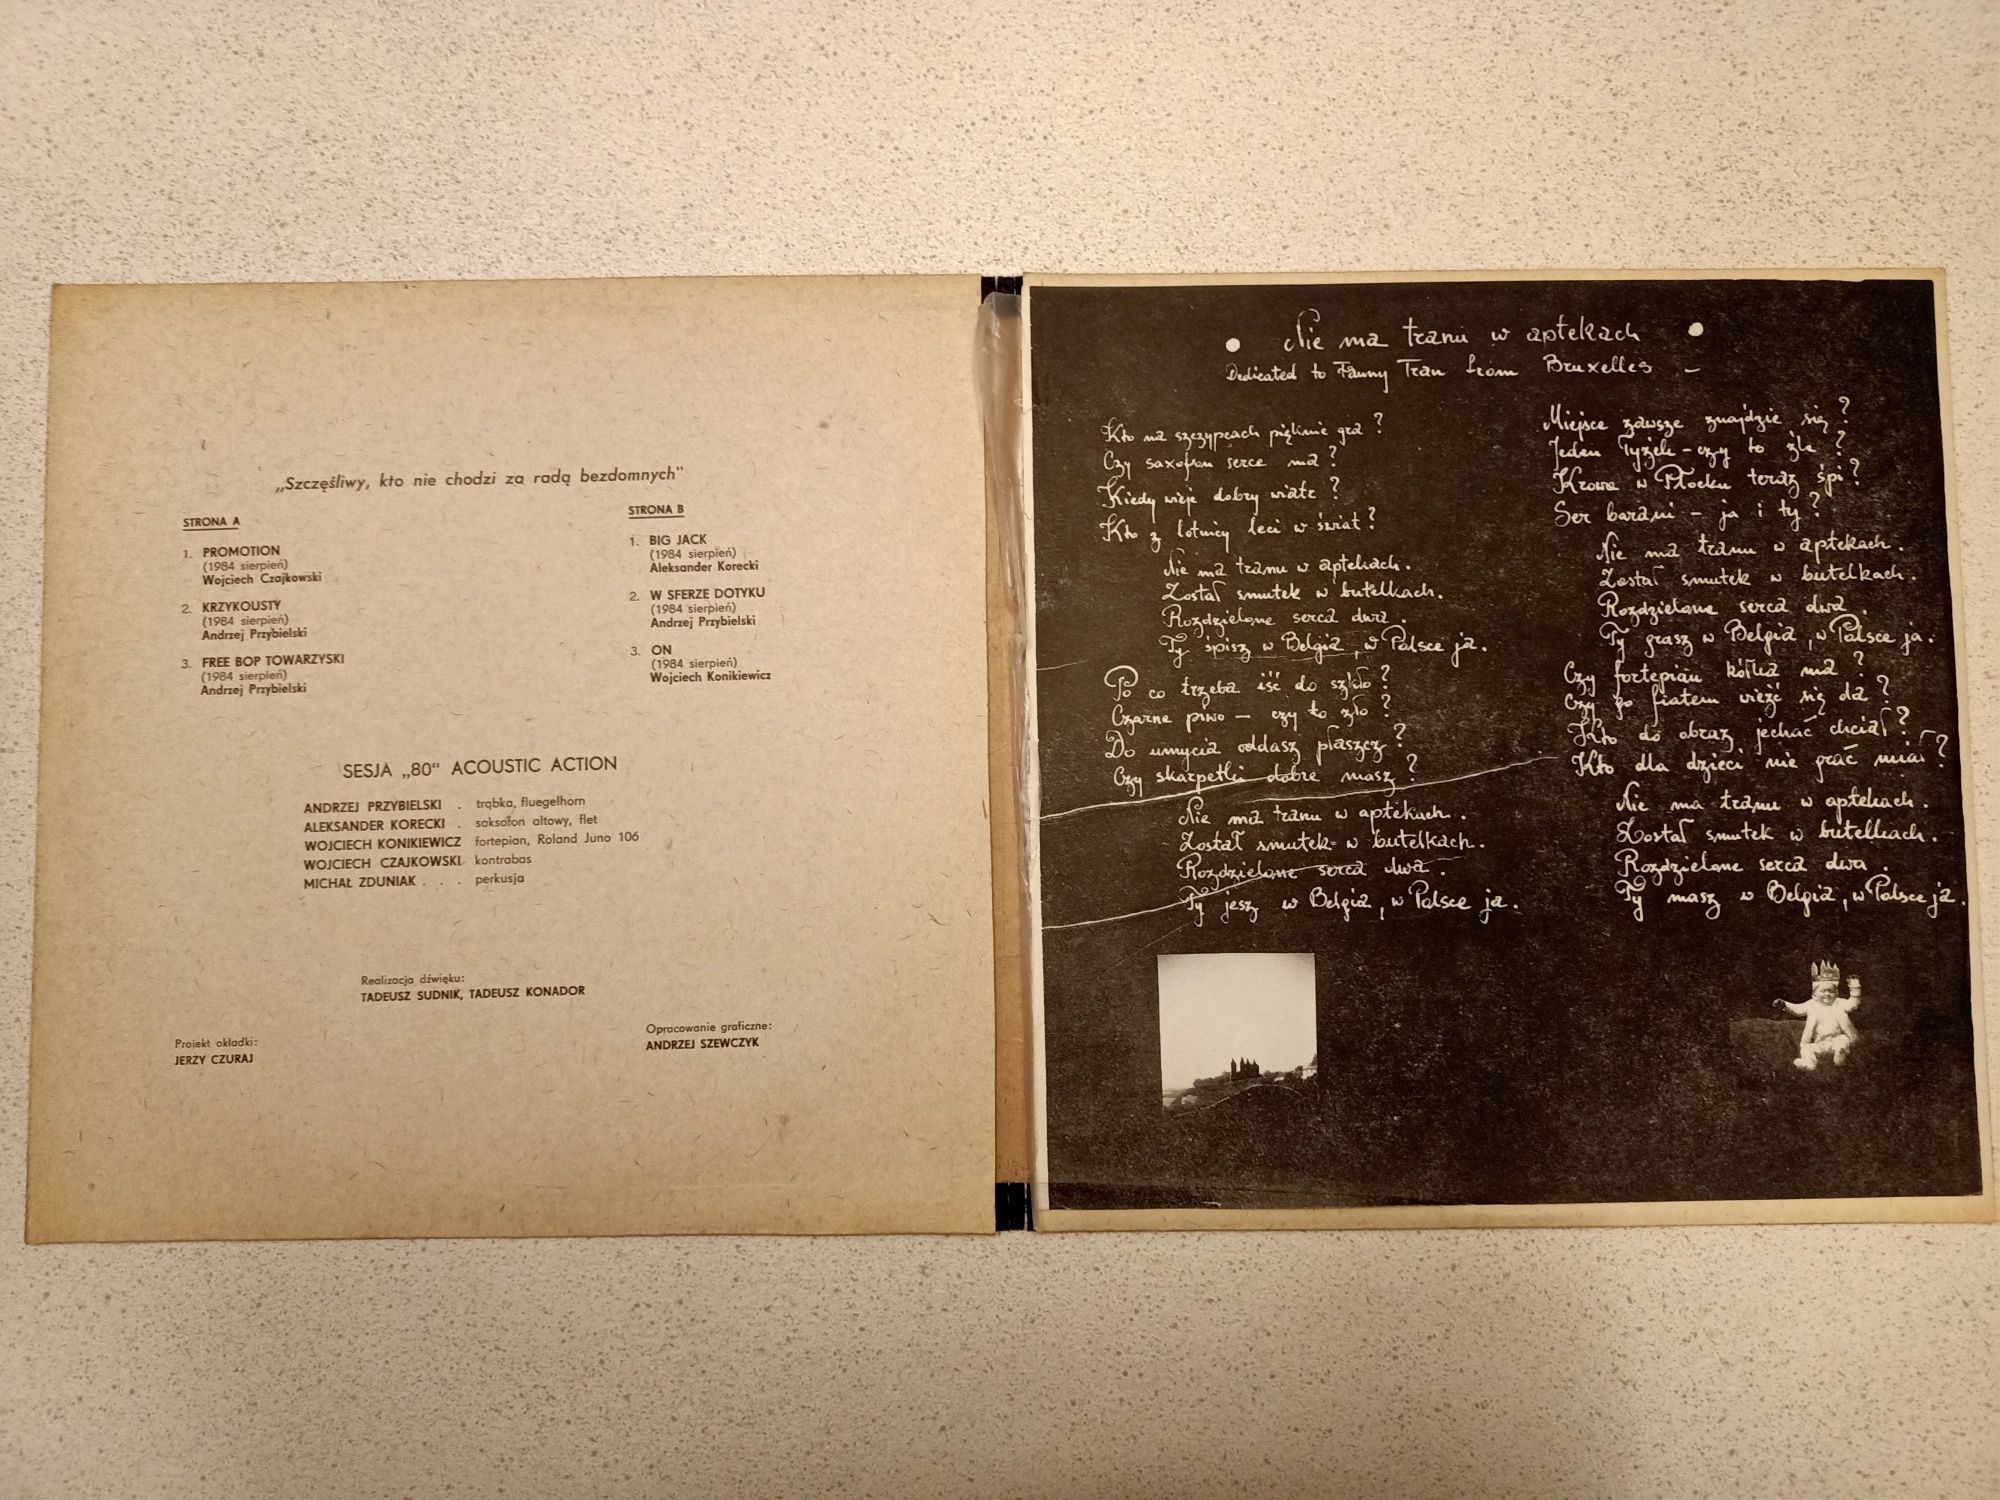 „Szczęśliwy, kto nie chodzi za radą bezdomnych"
STRONA A
1. PROMOTION
(1984 sierpień)
Wojciech Czajkowski
2. KRZYKOUSTY
(1984 sierpień)
Andrzej Przybielski
3. FREE BOP TOWARZYSKI
(1984 sierpień)
Andrzej Przybielski
STRONA B
1. BIG JACK
(1984 sierpień)
Aleksander Korecki
2. W SFERZE DOTYKU
(1984 sierpień)
Andrzej Przybielski
3. ON
(1984 sierpień)
Wojciech Konikiewicz
SESJA „80“ ACOUSTIC ACTION
ANDRZEJ PRZYBIELSKI . trąbka, fluegelhorn
ALEKSANDER KORECKI . saksofon altowy, flet
WOJCIECH KONIKIEWICZ fortepian, Roland Juno 106
WOJCIECH CZAJKOWSKI kontrabas
MICHAŁ ZDUNIAK . . . perkusja
Realizacja dźwięku:
TADEUSZ SUDNIK, TADEUSZ KONADOR
Projekt okładki:
JERZY CZURAJ
Opracowanie graficzne:
ANDRZEJ SZEWCZYK
Nie ma tranu w aptekach
Dedicated to Fanny Tran from Bruxelles –
Kto na szczypcach pięknie gra?
Czy saxofon serce ma?
Kiedy wieje dobry wiatr?
Kto z lotnicy leci w świat?
Nie ma tranu w aptekach.
Został smutek w butelkach.
Rozdzielone serca dwa.
Ty śpisz w Belgia, w Polsce ja.
Po co trzeba iść do szkło?
Czarne piwo – czy to zło?
Do umycia oddasz płaszcz?
Czy skarpetki dobre masz?
Nie ma tranu w aptekach.
Został smutek w butelkach.
Rozdzielone serca dwa.
Ty jesz w Belgia, w Polsce ja.
Miejsce zawsze znajdzie się?
Jeden Tyżek – czy to źle?
Krowa w Płocku teraz śpi?
Ser barani – ja i ty?
Nie ma tranu w aptekach.
Został smutek w butelkach.
Rozdzielone serca dwa.
Ty grasz w Belgia, w Polsce ja.
Czy fortepian kółka ma?
Czy go fiatem wieźć się da?
Kto do obraz jechać chciał?
Kto dla dzieci nie grać miał?
Nie ma tranu w aptekach.
Został smutek w butelkach.
Rozdzielone serca dwa.
Ty masz w Belgia, w Polsce ja.